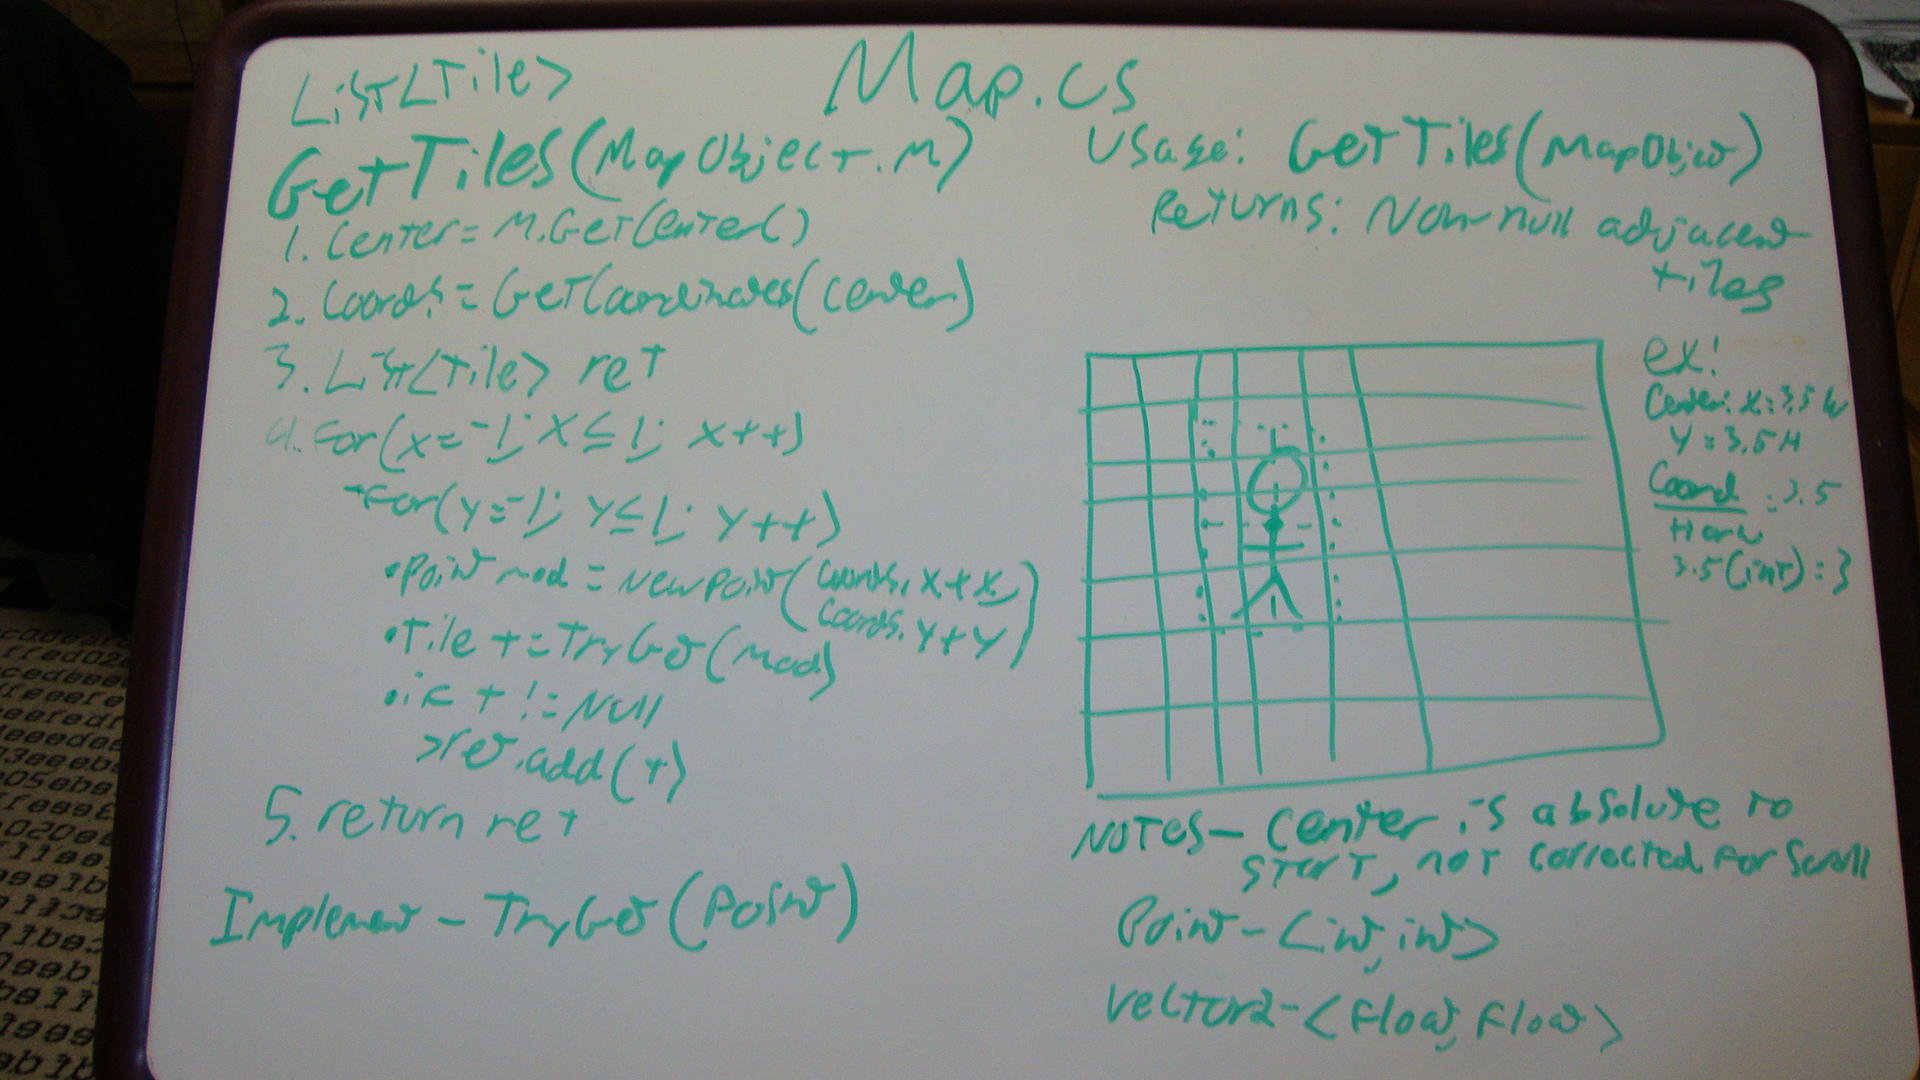 Map.cs
List<Tile>
GetTiles(MapObject.M)
1. Center = M.GetCenter()
2. Coords = GetCoordinates(center)
3. List<Tile> ret
4. For(x=-1; x≤1; x++)
For(y=-1; y≤1; y++)
•Point mod = new Point(Coords.x+x,
Coords.y+y)
•Tile t=TryGet(mod)
•if t != Null
>ret.add(t)
5. return ret
Implement - TryGet(Point)
Usage: GetTiles(MapObject)
Returns: Non-null adjacent
tiles
ex:
Center: x=3.5W
y=3.5H
Coord
H or W
: 3.5
3.5(int) = 3
NOTES- Center is absolute to
start, not corrected for scroll
Point-<int,int>
Vector2-<float,float>